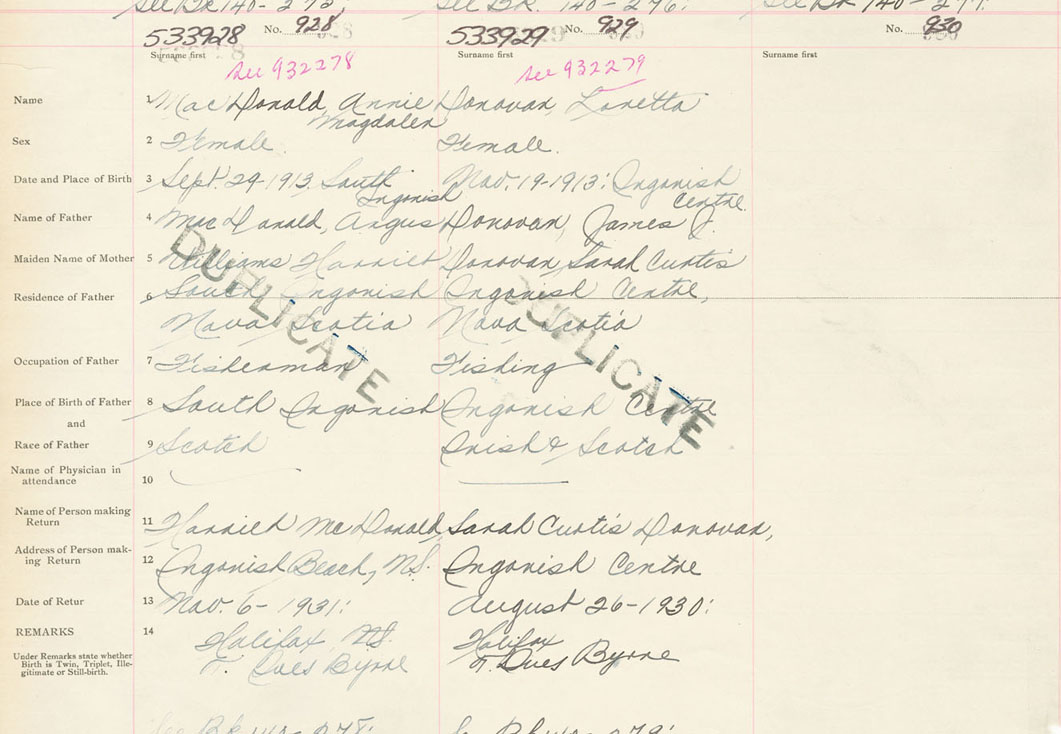 See Bk 140-275, See Bk. 140-276. See Bk 140-277.
533928 No. 928 533929 No. 929 No. 930
Surname first Surname first Surname first
See 932278 See 932279
Name 1 MacDonald, Annie Donovan, Loretta
Magdalen
Sex 2 Female. Female.
Date and Place of Birth 3 Sept. 29-1913. South Nov. 19-1913: Ingonish
Ingonish Centre.
Name of Father 4 MacDonald, Angus Donovan, James J.
Maiden Name of Mother 5 Williams Harriet Donovan, Sarah Curtis
Residence of Father 6 South Ingonish Ingonish Centre,
Nova Scotia Nova Scotia
DUPLICATE DUPLICATE
Occupation of Father 7 Fisherman Fishing
Place of Birth of Father 8 South Ingonish Ingonish Centre
and
Race of Father 9 Scotch Irish & Scotch
Name of Physician in
attendance 10
Name of Person making
Return 11 Harriet McDonald Sarah Curtis Donovan,
Address of Person mak-
ing Return 12 Ingonish Beach, N.S. Ingonish Centre
Date of Retur 13 Nov. 6-1931: August 26-1930:
REMARKS 14 Halifax, N.S. Halifax
Under Remarks state whether
Birth is Twin, Triplet, Ille-
gitimate or Still-birth.
T. Ives Byrne T. Ives Byrne